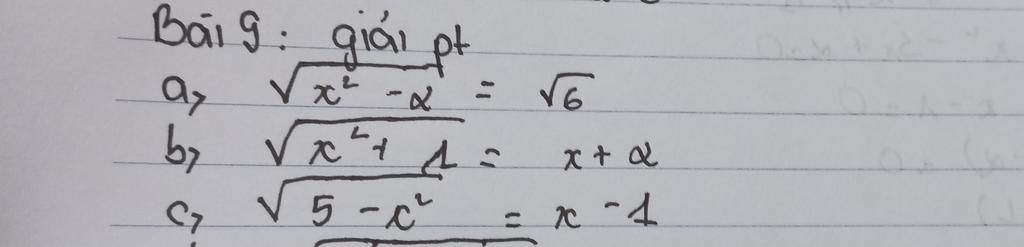 Bài 9: giải pt
a, √(x² - 2) = √6
b, √(x² + 1) = x + 2
c, √(5 - x²) = x - 1